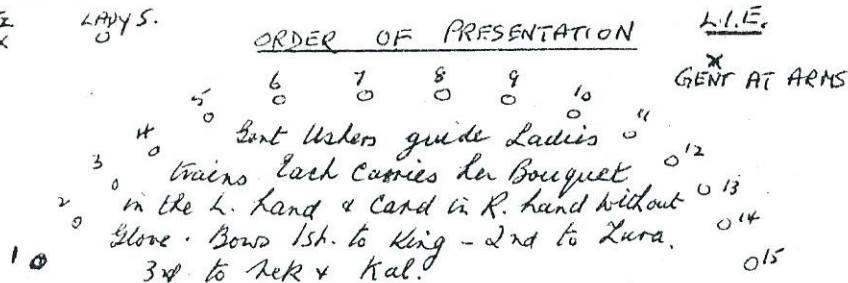 LADY S.
L.I.E.
ORDER OF PRESENTATION
X
GENT AT ARMS
1 2 3 4 5 6 7 8 9 10 11 12 13 14 15
Gent Ushers guide Ladies
trains Each carries her Bouquet
in the L. hand & Card in R. hand without
Glove. Bows 1st. to King - 2nd to Zura.
3rd to Nek & Kal.